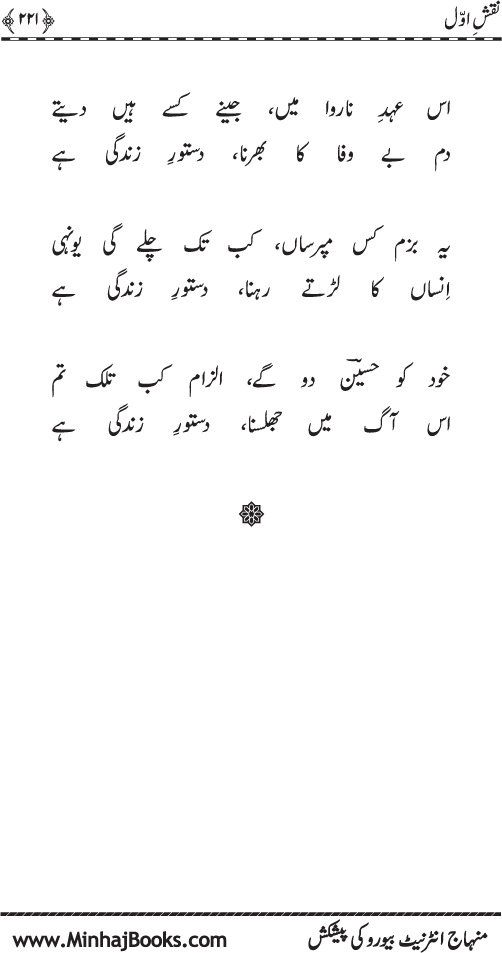 نقشِ اوّل
﴿۲۲۱﴾
اس عہدِ ناروا میں، جینے کسے ہیں دیتے
دم بے وفا کا بھرنا، دستورِ زندگی ہے
یہ بزم کس مپرساں، کب تک چلے گی یونہی
اِنساں کا لڑتے رہنا، دستورِ زندگی ہے
خود کو حسینؔ دو گے، الزام کب تلک تم
اس آگ میں جھلسنا، دستورِ زندگی ہے
منہاج انٹرنیٹ بیورو کی پیشکش
www.MinhajBooks.com